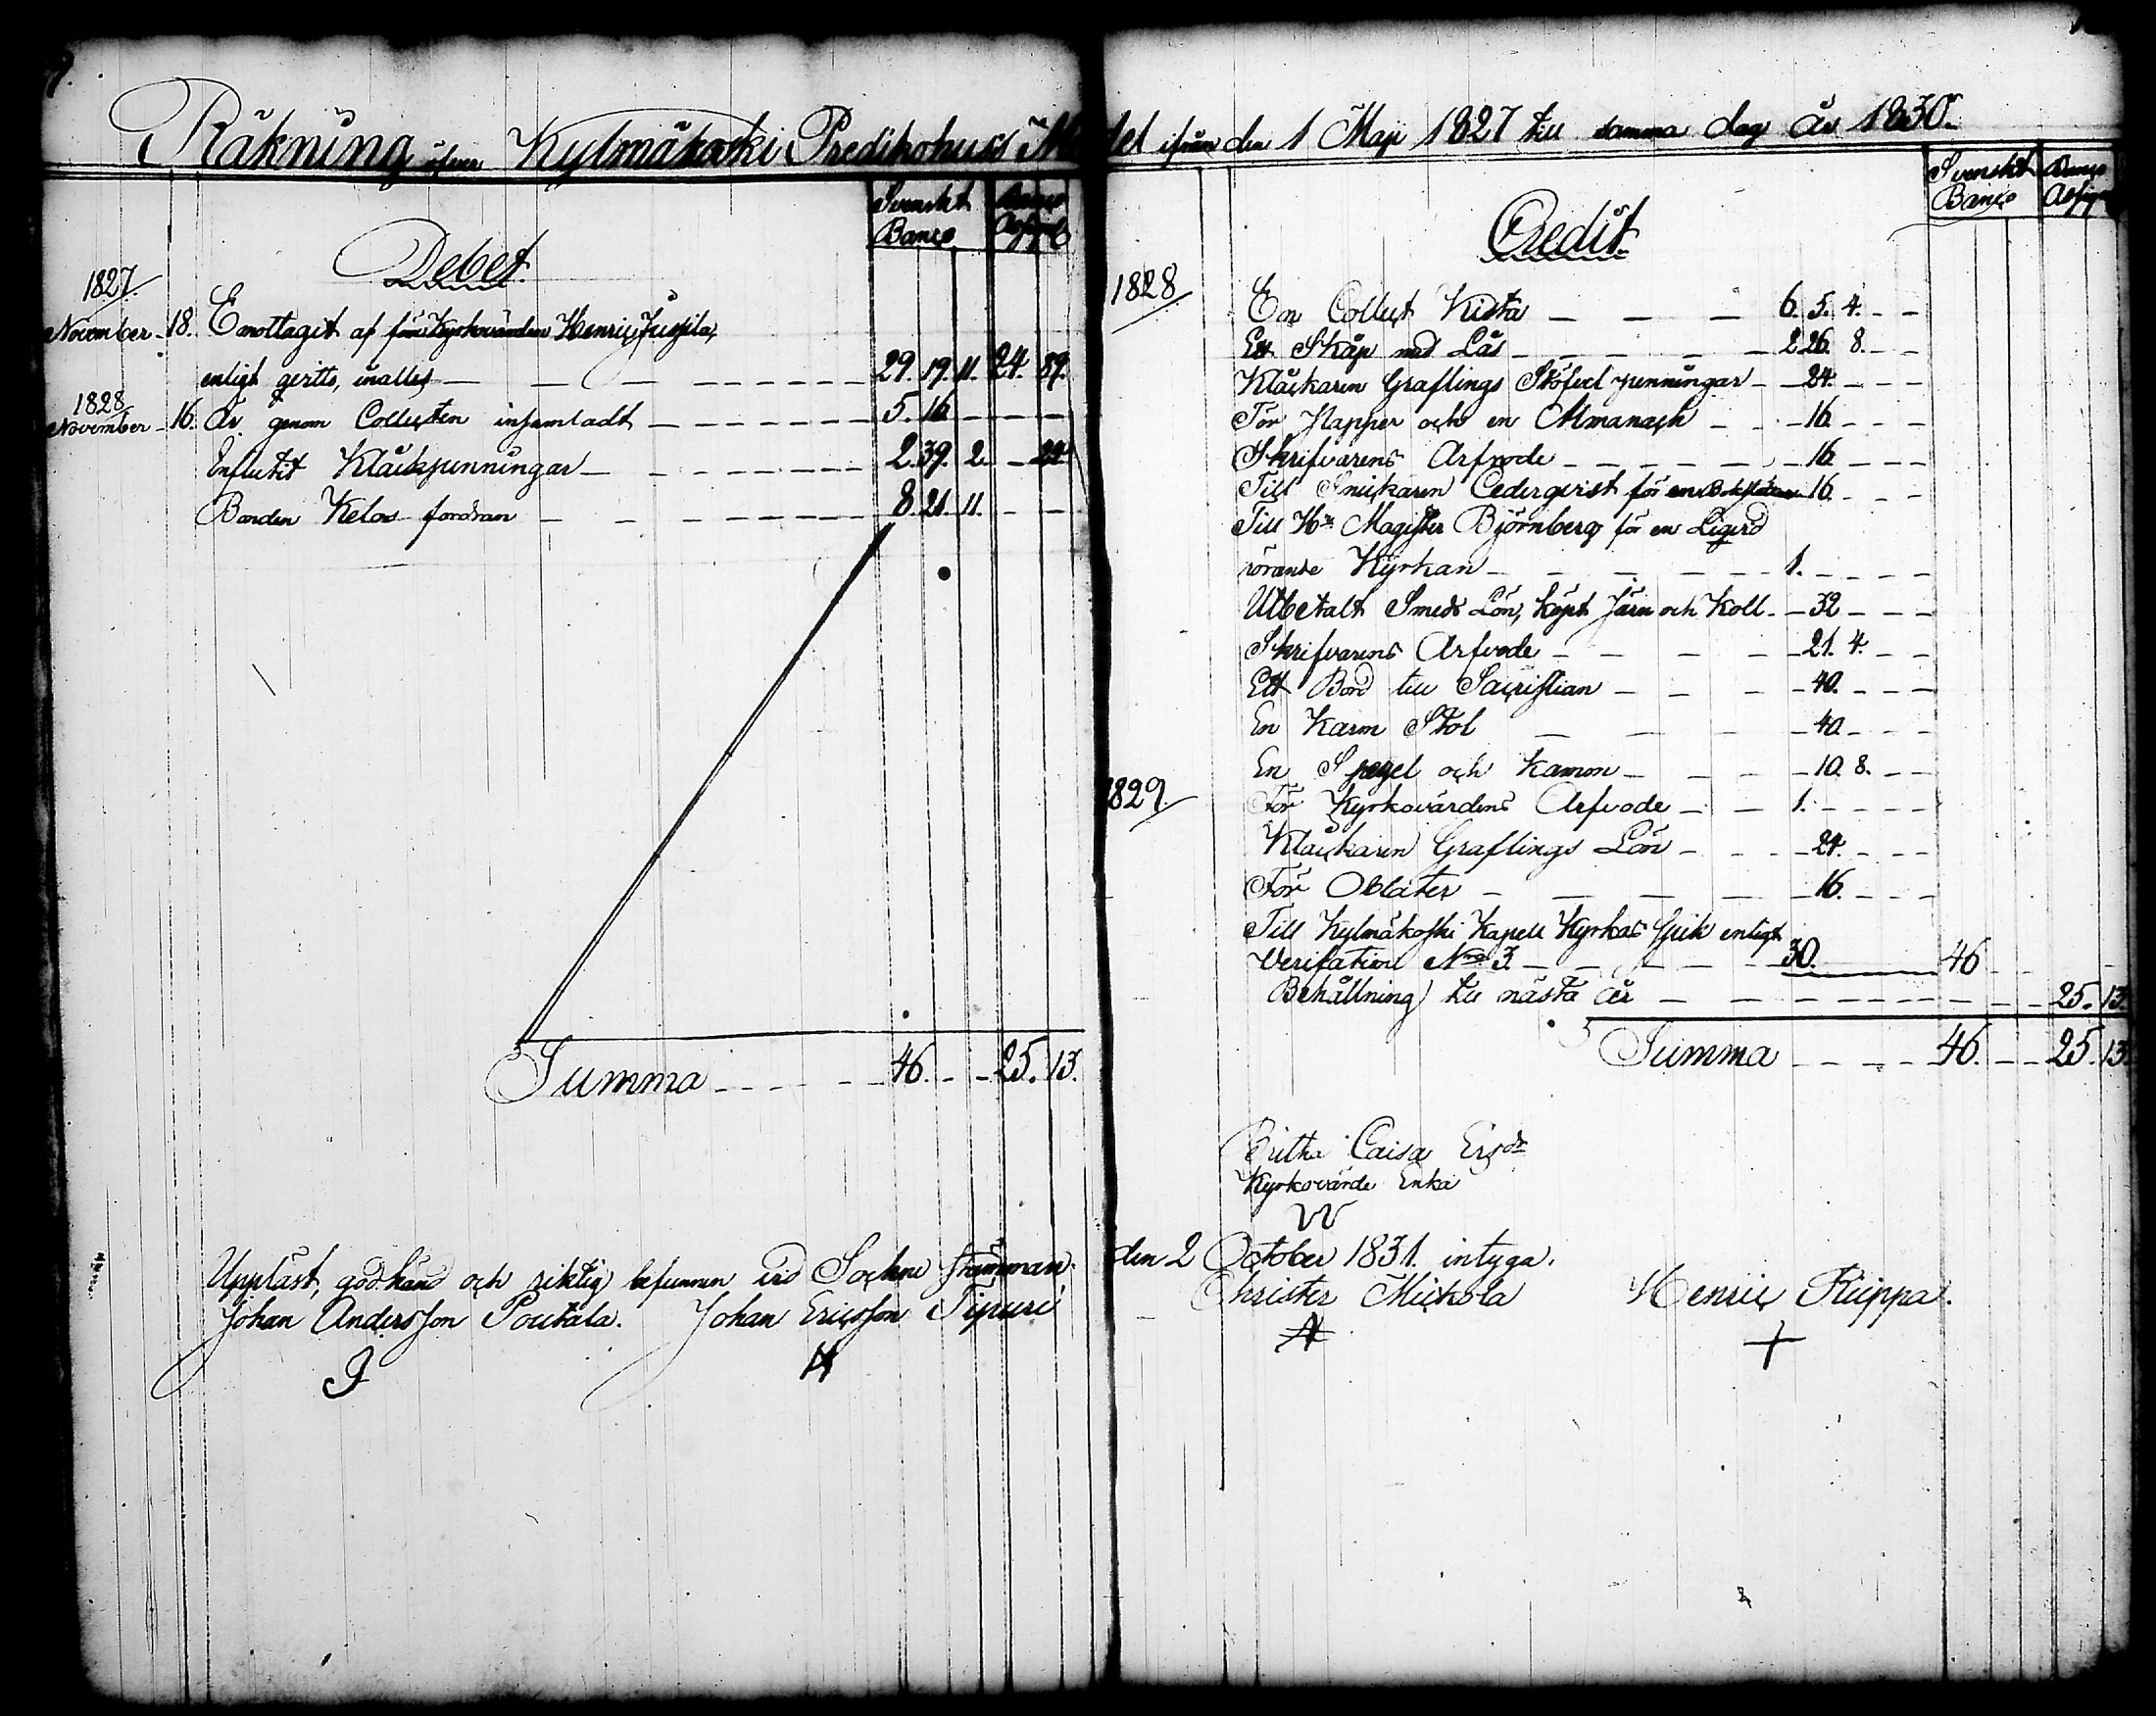 Räkning öfver Kylmäkoski Predikohus
Svenskt Banco
Banco Assign
Debet
1827
November 18. Emottaget af förre Kyrkovärden Henric Jussila,
enligt qvitto, inalles 29. 19. 11. 24. 89.
1828
November 16. Är genom Collecten insamladt 5. 16.
Influtit Klåckpenningar 2. 39. 2. 24
Bonden Kelos fordran 8. 21. 11.
Summa 46. 25. 13.
Uppläst, godkänd och riktig befunnen vid Sockne stämman
Johan Andersson Poutala. Johan Ericsson Tipuri
ifrån den 1 Maji 1827 till samma dag År 1830.
Svenskt Banco
Banco Assign
Credit
1828
En Collect Kista 6. 5. 4.
Ett Skåp med Lås 2. 26. 8.
Klåckaren Graflings Stöfvel penningar 24.
För Papper och en Almanach 16.
Skrifvarens Arfvode 16
Till Snickaren Cedergvist för en 16.
Till Hr Magister Björnberg för en
rörande Kyrkan 1.
Utbetalt Smeds Lön, köpt Järn och Koll 32
Skrifvarens Arfvode 21. 4.
Ett Bord till Sacristian 40.
En Karm Stol 40
En Spegel och Kamm 10. 8.
1829
För Kyrkovärdens Arfvode 1.
Klåckaren Graflings Lön 24.
För Oblater 16.
Till Kylmäkoski Kapell Kyrkas enligt
Verification No 3. 30. 46
Behållning till nästa år 25. 13.
Summa 46. 25. 13
Britha Caisa Ericsdr
Kyrkovärde Enka
den 2 October 1831. intyga.
Christer Mickola Henric Riippa.